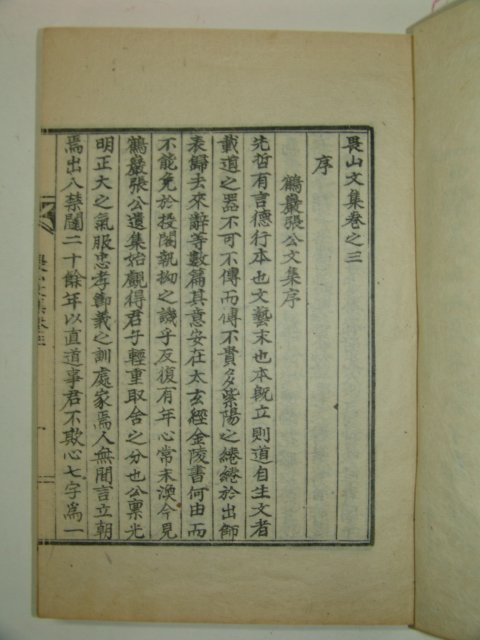 畏山文集卷之三
序
鶴巖張公文集序
先哲有言德行本也文藝末也本旣立則道自生文者
載道之器不可不傳而傳不貴多紫陽之綣綣於出師
表歸去來辭等數篇其意安在太玄經金陵書何由而
不能免於投閣執拗之譏乎反復有年心常未渙今見
鶴巖張公遺集始觀得君子輕重取舍之分也公稟光
明正大之氣服忠孝節義之訓處家焉人無間言立朝
焉出入禁闥二十餘年以直道事君不欺心七字爲一